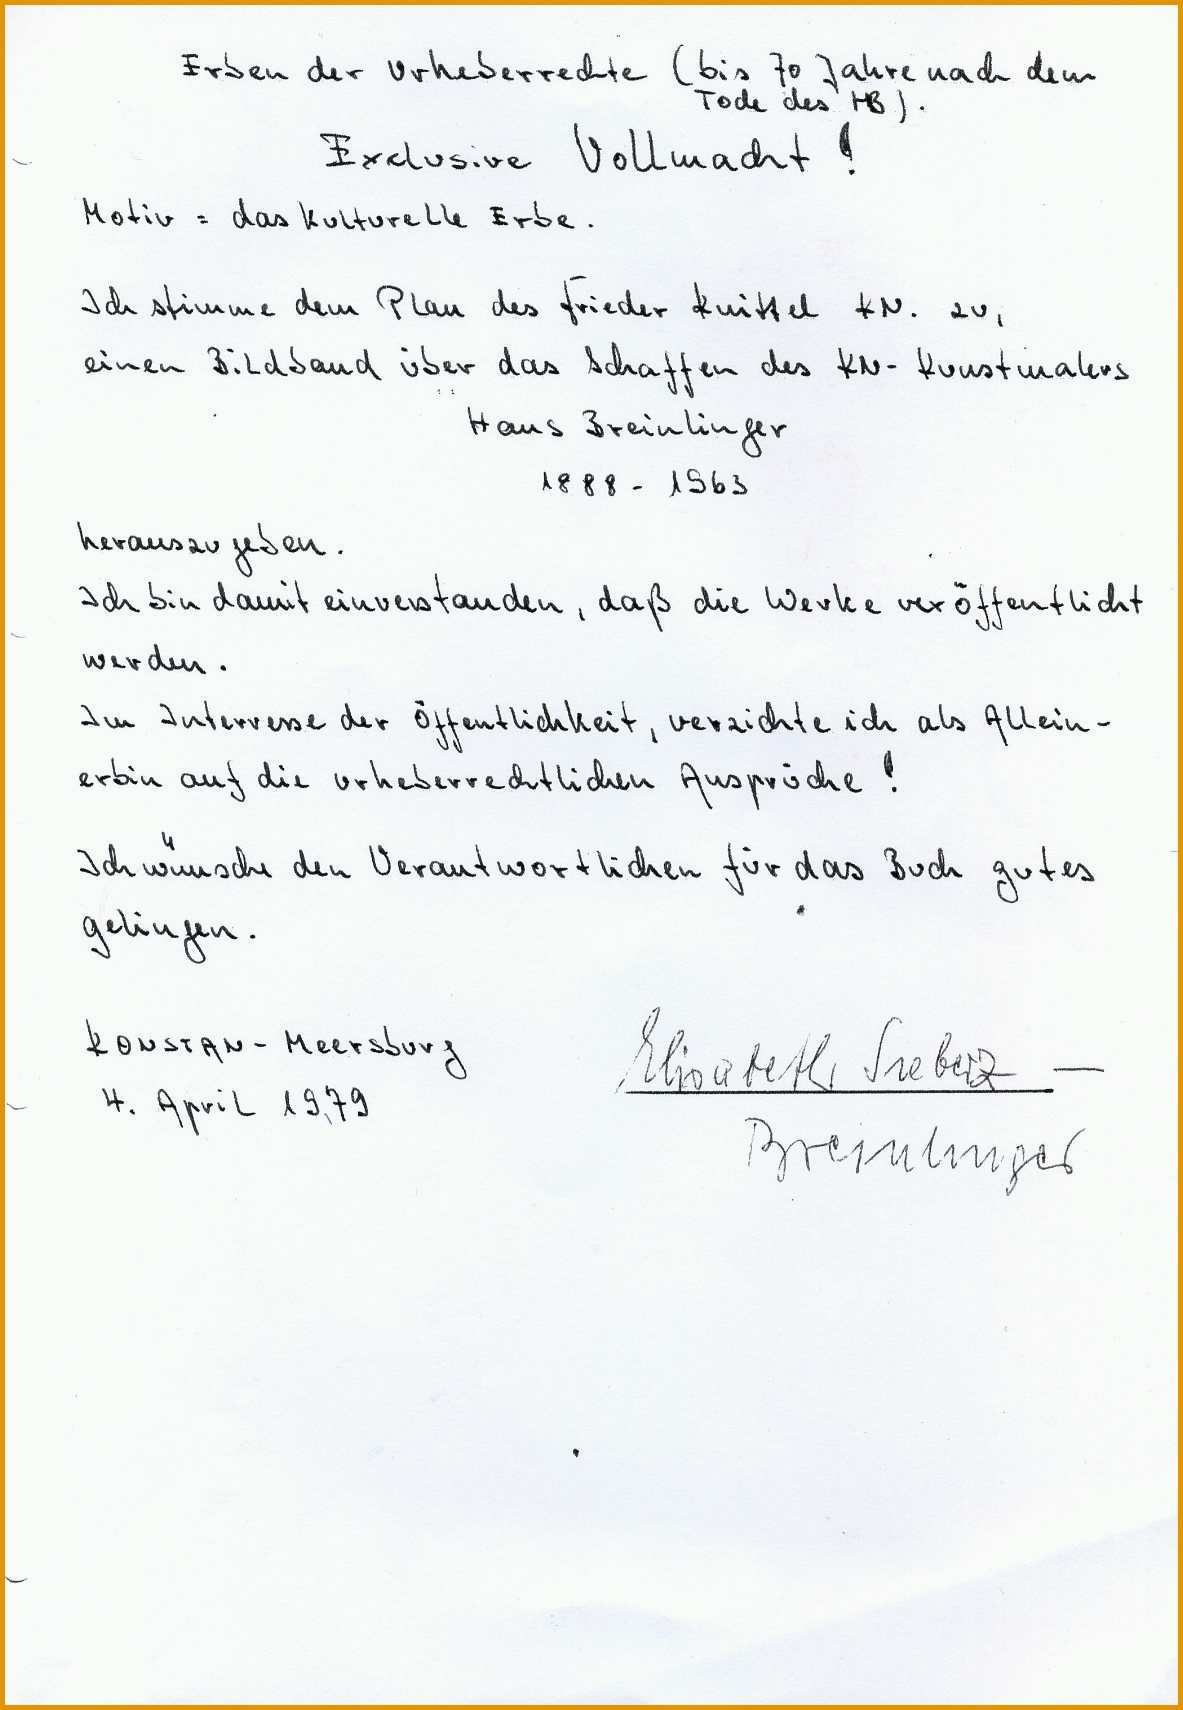 Erben der Urheberrechte (bis 70 Jahre nach dem
Tode des HB).
Exclusive Vollmacht!
Motiv = das kulturelle Erbe.
Ich stimme dem Plan des Frieder Knittel KN. zu,
einen Bildband über das Schaffen des KN-Kunstmalers
Hans Breinlinger
1888 - 1963
herauszugeben.
Ich bin damit einverstanden, daß die Werke veröffentlicht
werden.
Im Interresse der Öffentlichkeit, verzichte ich als Allein-
erbin auf die urheberrechtlichen Ansprüche!
Ich wünsche den Verantwortlichen für das Buch gutes
gelingen.
KONSTAN - Meersburg
4. April 1979
Elisabeth —
Breinlinger